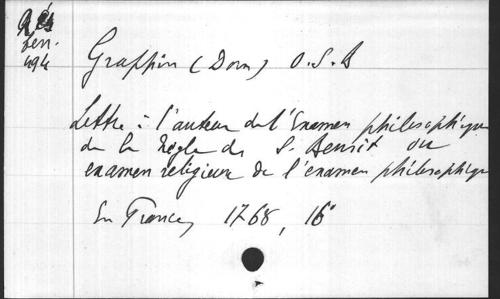 Rés
494
Grappin (Dom) O.S.B
Lettre à l'auteur de l'Examen philosophique
de la Règle de S. Benoit ou
examen religieux de l'examen philosophique
En France, 1768, 16°